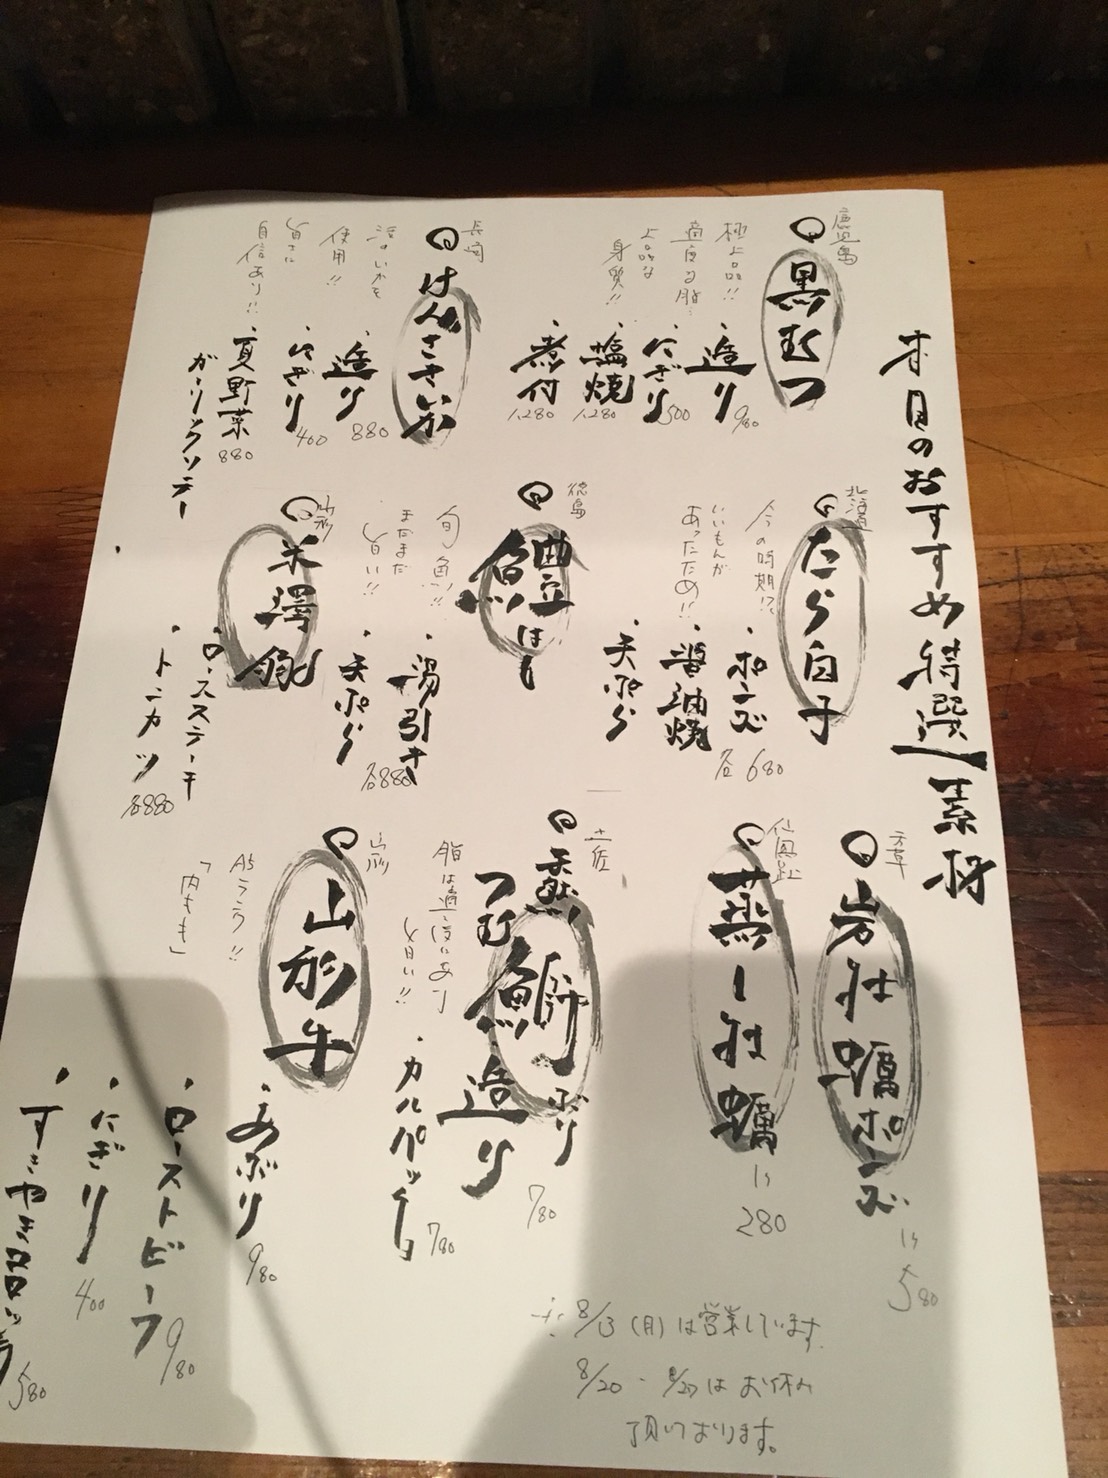 本日のおすすめ特選素材
鹿児島
黒むつ
極上品!!
適度な脂
上品な
身質!!
・造り 980
・にぎり 500
・塩焼 1,280
・煮付 1,280
長崎
けんさきいか
活けいかを
使用!!
旨さに
自信あり!!
・造り 880
・にぎり 400
・夏野菜 880
ガーリックソテー
北海道
たら白子
今の時期!?
いいもんが
あったため!!
・ポン
・醤油焼
・天ぷら
各680
徳島
鱧はも
旬魚!!
まだまだ
旨い!!
・湯引き
・天ぷら
各880
山形
米澤豚
・ロースステーキ
・トンカツ
各880
天草
岩牡蠣ポン酢
1ヶ
580
仙鳳趾
蒸し牡蠣
1ヶ
280
土佐
天然
鰤ぶり
つむ
造り
780
脂は適度にあり
旨い!!
・カルパッチョ
780
山形
山形牛
A5ランク!!
「内もも」
・あぶり 980
・ローストビーフ 980
・にぎり 400
・すきやきコロッケ 580
※8/13(月)は営業しています。
8/20・8/27はお休み
頂いております。